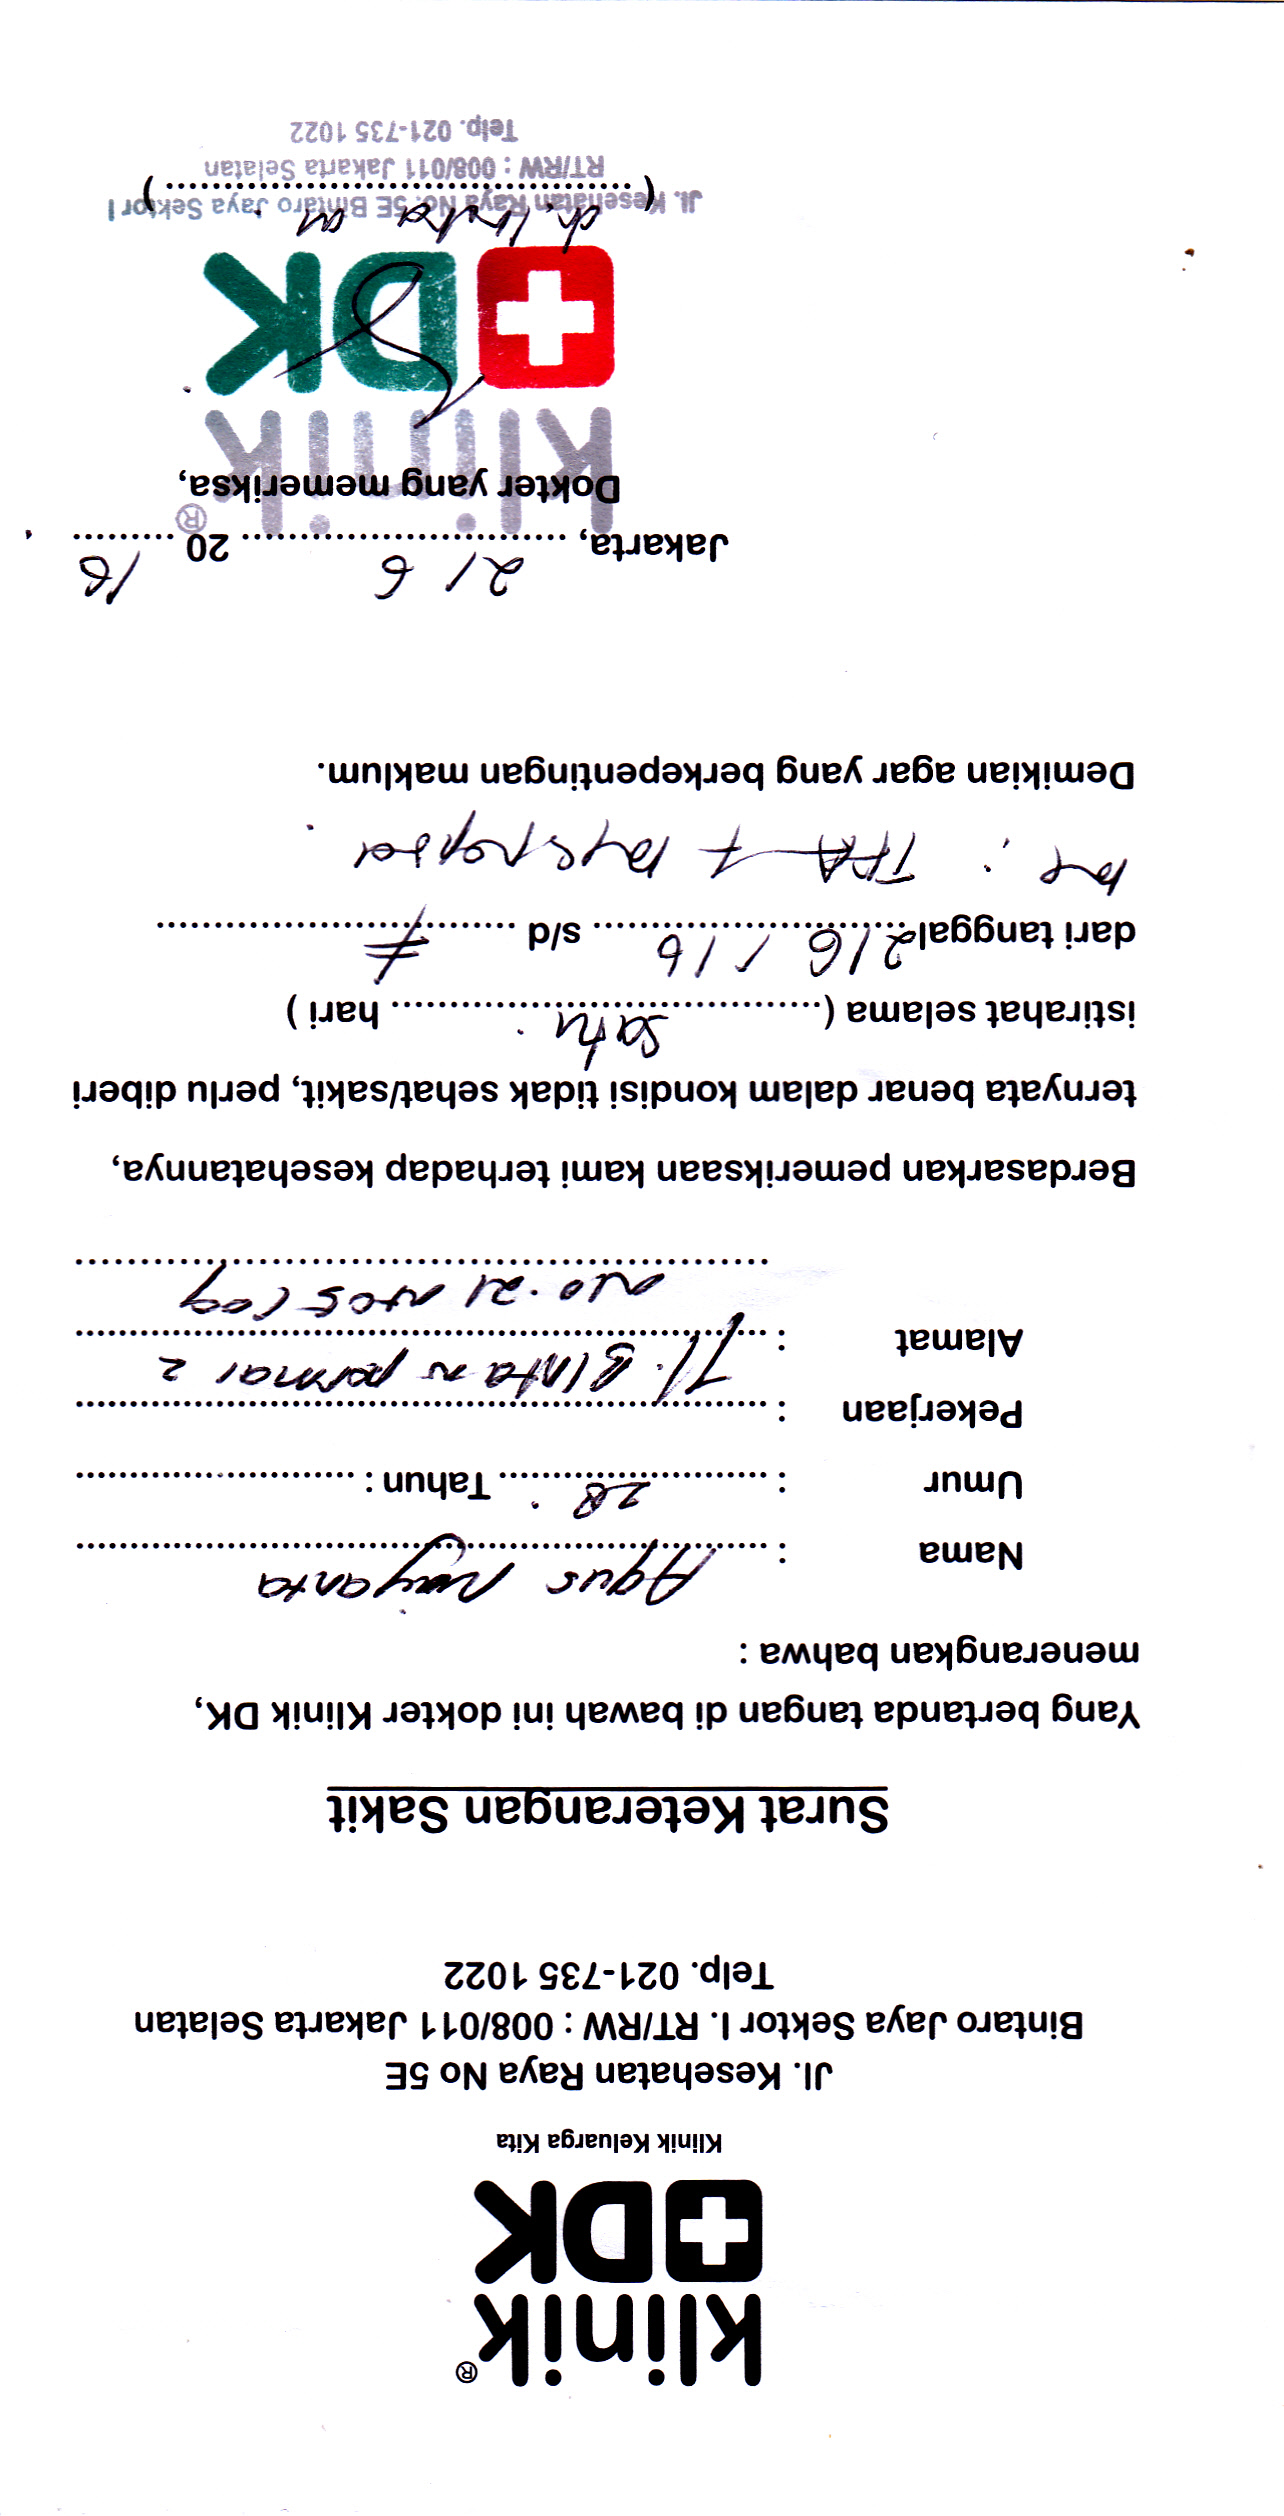 klinik®
DK
Klinik Keluarga Kita
Jl. Kesehatan Raya No 5E
Bintaro Jaya Sektor I. RT/RW : 008/011 Jakarta Selatan
Telp. 021-735 1022
Surat Keterangan Sakit
Yang bertanda tangan di bawah ini dokter Klinik DK,
menerangkan bahwa :
Nama : Agus
Umur : 28 Tahun :
Pekerjaan :
Alamat : Jl. Bintaro permai 2
no. 21
Berdasarkan pemeriksaan kami terhadap kesehatannya,
ternyata benar dalam kondisi tidak sehat/sakit, perlu diberi
istirahat selama ( satu hari )
dari tanggal 2/6 / 16 s/d
Demikian agar yang berkepentingan maklum.
Jakarta, 2/6 20 16
Dokter yang memeriksa,
klinik®
DK
Jl. Kesehatan Raya No. 5E Bintaro Jaya Sektor I
RT/RW : 008/011 Jakarta Selatan
Telp. 021-735 1022